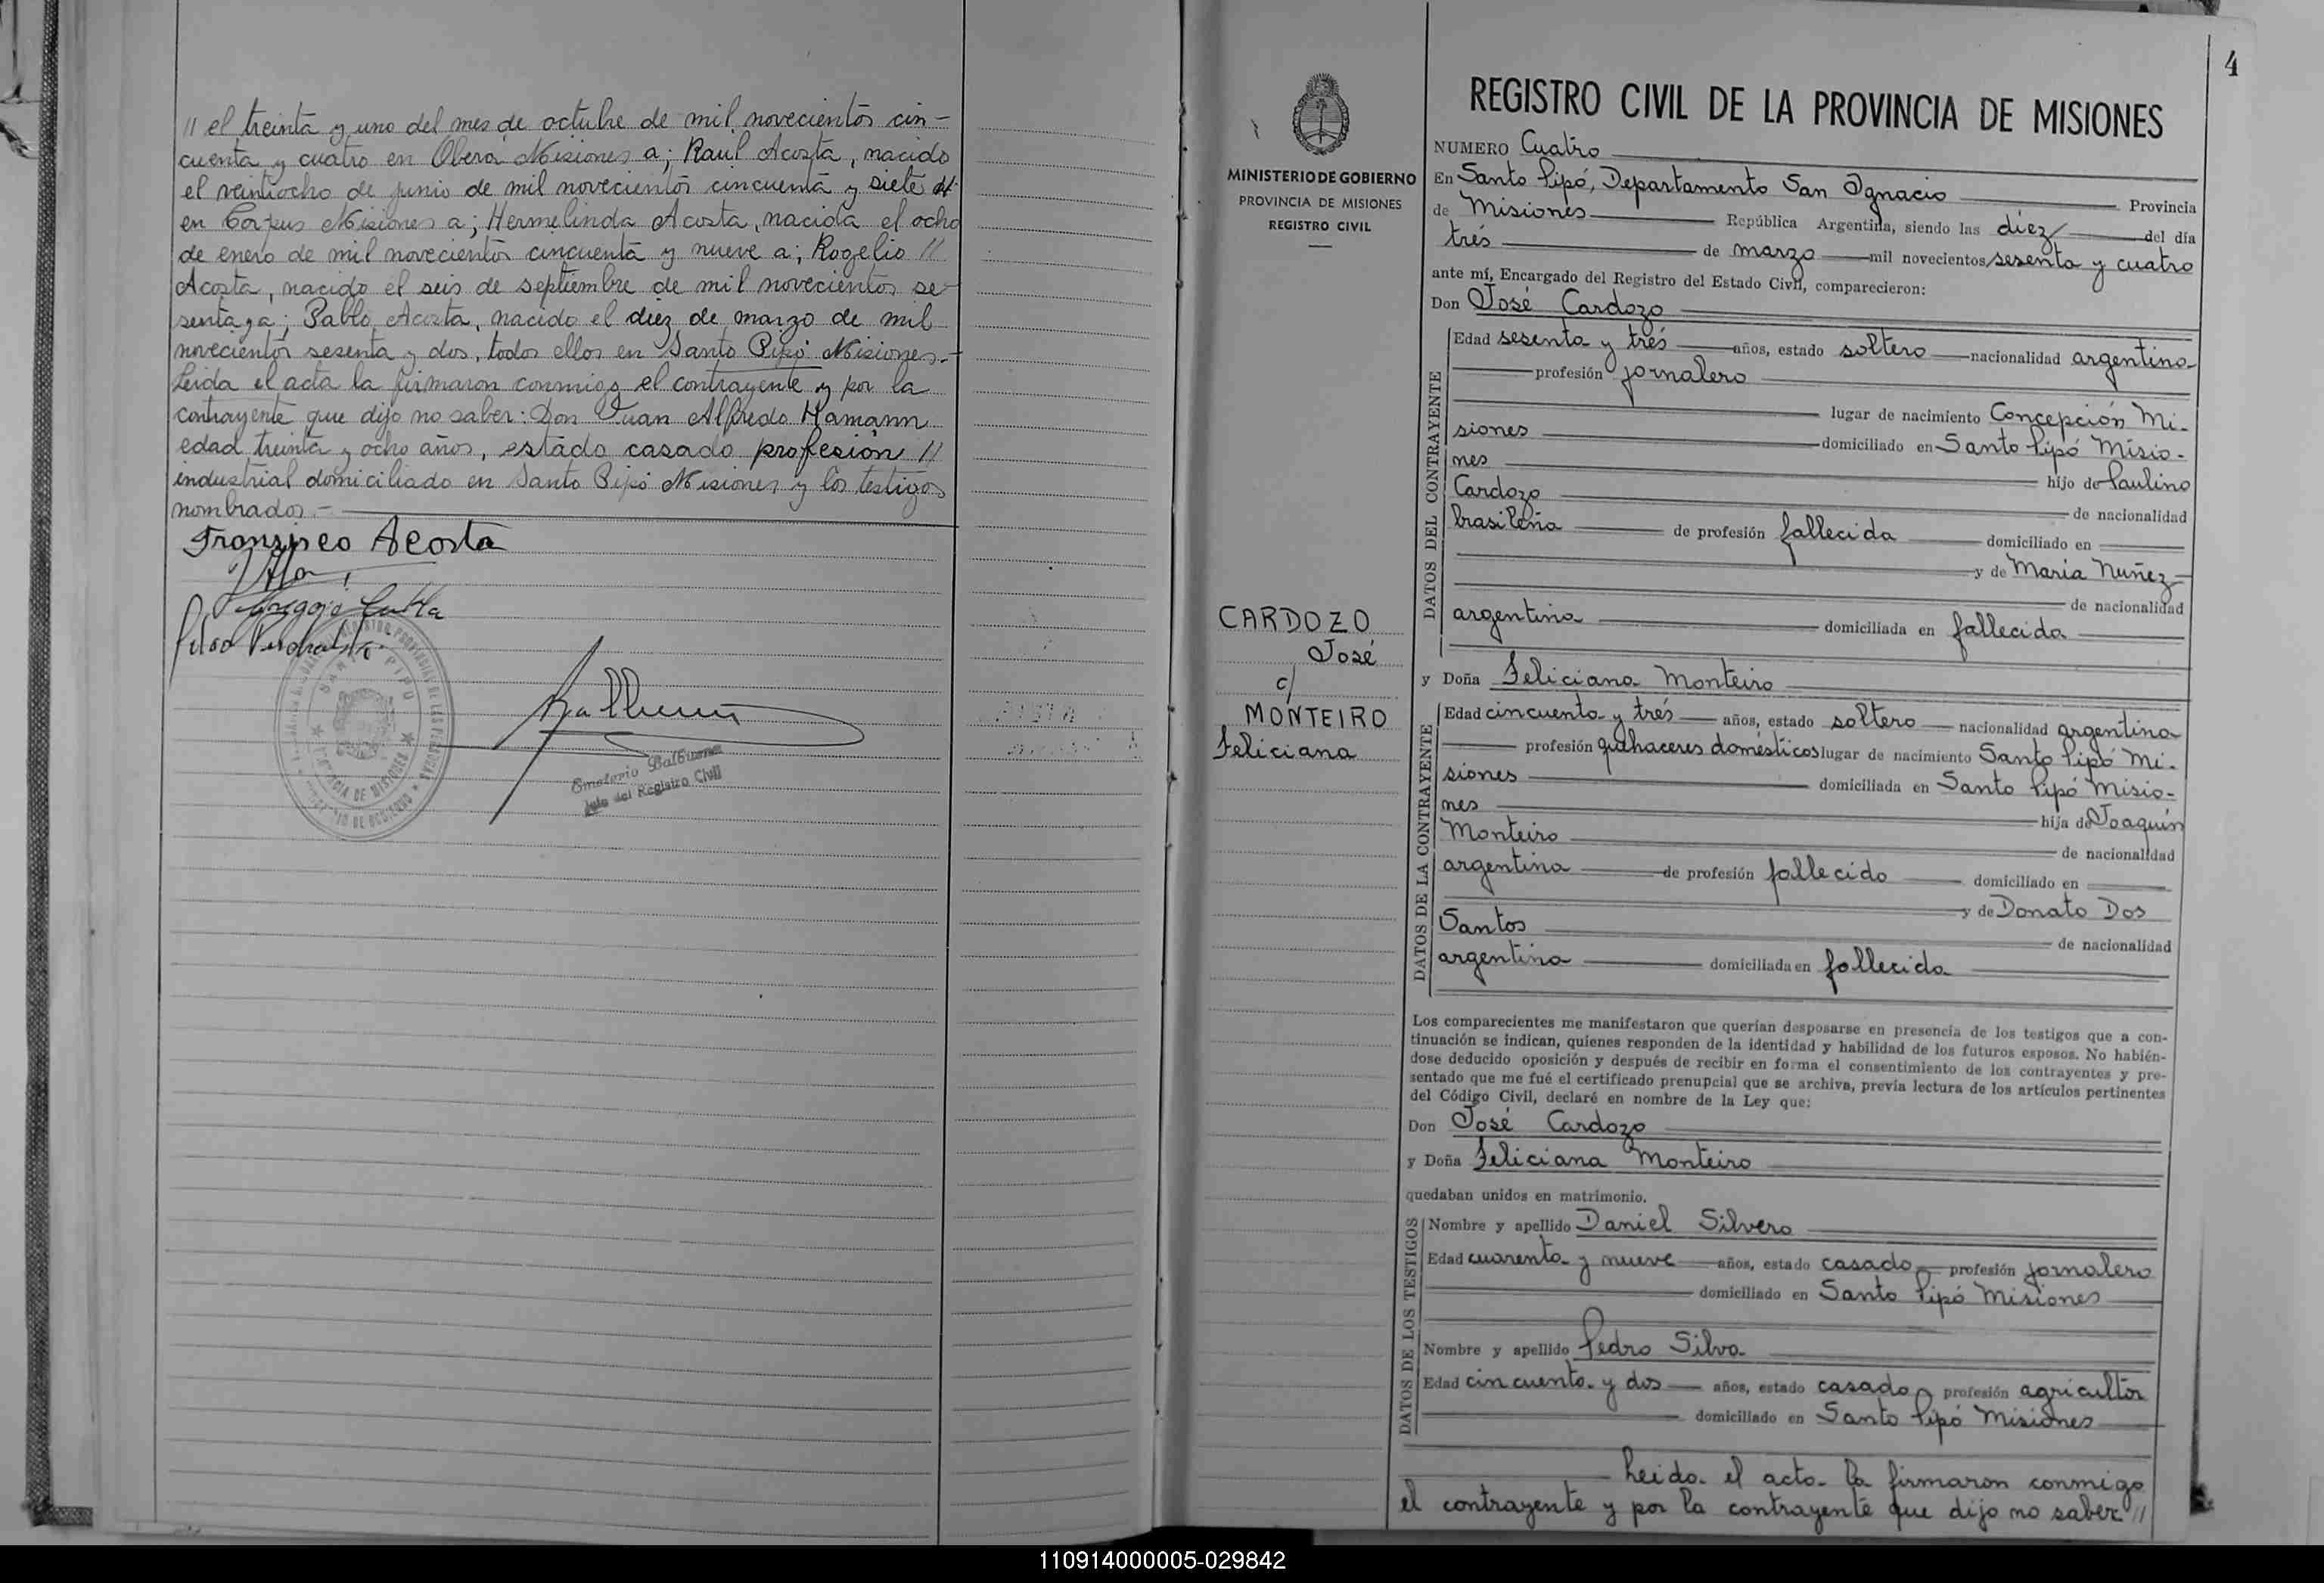 // el treinta y uno del mes de octubre de mil novecientos cin-
cuenta y cuatro en Oberá Misiones a; Raul Acosta, nacido
el veintiocho de junio de mil novecientos cincuenta y siete
en Corpus Misiones a; Hermelinda Acosta, nacida el ocho
de enero de mil novecientos cincuenta y nueve a; Rogelio //
Acosta, nacido el seis de septiembre de mil novecientos se-
senta y a; Pablo Acosta, nacido el diez de marzo de mil
novecientos sesenta y dos, todos ellos en Santo Pipó Misiones.-
Leida el acta la firmaron conmigo el contrayente y por la
contrayente que dijo no saber: Don Juan Alfredo Hamann
edad treinta y ocho años, estado casado profesión //
industrial domiciliado en Santo Pipó Misiones y los testigos
nombrados.-
Fransisco Acosta
SANTO PIPO
PROVINCIA DE MISIONES
Emeterio Balbuena
Jefe del Registro Civil
4
MINISTERIO DE GOBIERNO
PROVINCIA DE MISIONES
REGISTRO CIVIL
CARDOZO
José
c/
MONTEIRO
Feliciana
REGISTRO CIVIL DE LA PROVINCIA DE MISIONES
NUMERO Cuatro
En Santo Pipó, Departamento San Ignacio Provincia
de Misiones República Argentina, siendo las diez del día
trés de marzo mil novecientos sesenta y cuatro
ante mí, Encargado del Registro del Estado Civil, comparecieron:
Don José Cardozo
DATOS DEL CONTRAYENTE
Edad sesenta y trés años, estado soltero nacionalidad argentina
profesión jornalero
lugar de nacimiento Concepción Mi-
siones domiciliado en Santo Pipó Misio-
nes hijo de Paulino
Cardozo de nacionalidad
brasileña de profesión fallecida domiciliado en
y de Maria Nuñez
de nacionalidad
argentina domiciliada en fallecida
y Doña Feliciana Monteiro
DATOS DE LA CONTRAYENTE
Edad cincuenta y trés años, estado soltero nacionalidad argentina
profesión quehaceres domésticos lugar de nacimiento Santo Pipó Mi-
siones domiciliada en Santo Pipó Misio-
nes hija de Joaquín
Monteiro de nacionalidad
argentina de profesión fallecido domiciliado en
y de Donato Dos
Santos de nacionalidad
argentina domiciliada en fallecida
Los comparecientes me manifestaron que querían desposarse en presencia de los testigos que a con-
tinuación se indican, quienes responden de la identidad y habilidad de los futuros esposos. No habién-
dose deducido oposición y después de recibir en forma el consentimiento de los contrayentes y pre-
sentado que me fué el certificado prenupcial que se archiva, previa lectura de los artículos pertinentes
del Código Civil, declaré en nombre de la Ley que:
Don José Cardozo
y Doña Feliciana Monteiro
quedaban unidos en matrimonio.
DATOS DE LOS TESTIGOS
Nombre y apellido Daniel Silvero
Edad cuarenta y nueve años, estado casado profesión jornalero
domiciliado en Santo Pipó Misiones
Nombre y apellido Pedro Silva
Edad cincuenta y dos años, estado casado profesión agricultor
domiciliado en Santo Pipó Misiones
Leida el acta la firmaron conmigo
el contrayente y por la contrayente que dijo no saber //
110914000005-029842